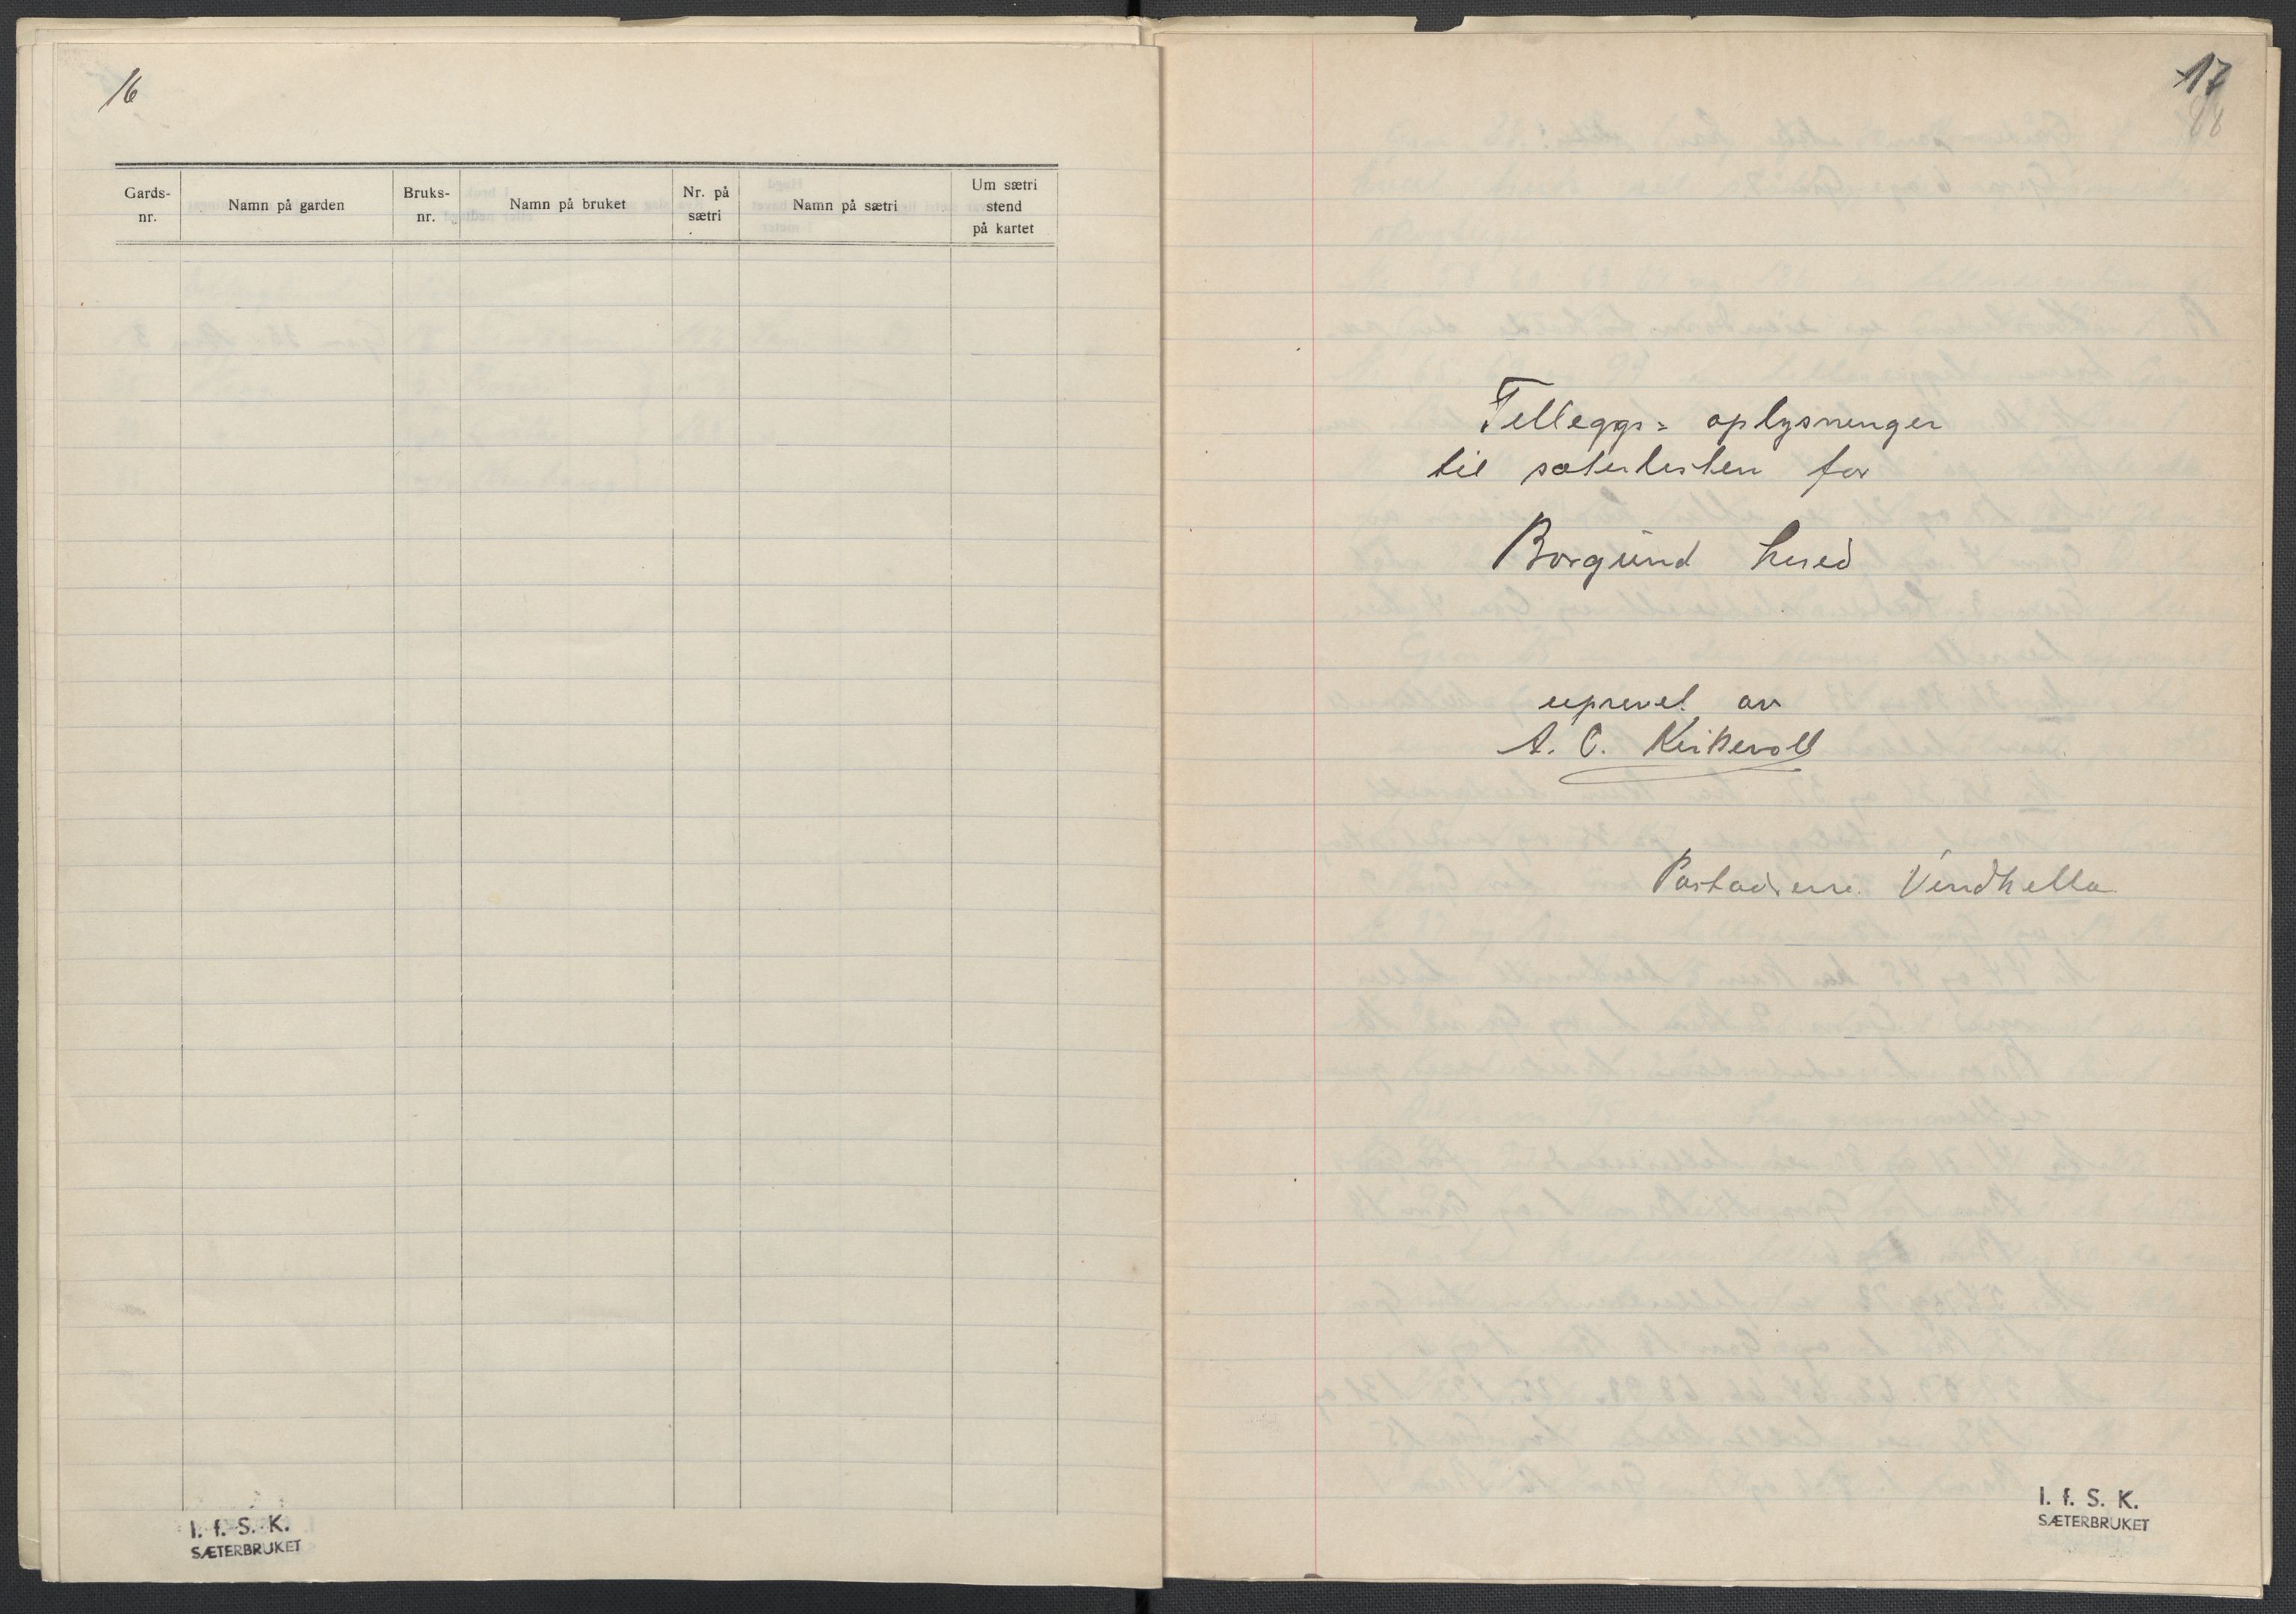 16
Gards-
nr.
Namn på garden
Bruks-
nr.
Namn på bruket
Nr. på
sætri
Namn på sætri
Um sætri
stend
på kartet
I. f. S. K.
SÆTERBRUKET
17
Tilleggs= oplysninger
til seterlisten for
Borgund herred
A. O. Kirkevoll
Postadresse. Vindhella
I. f. S. K.
SÆTERBRUKET